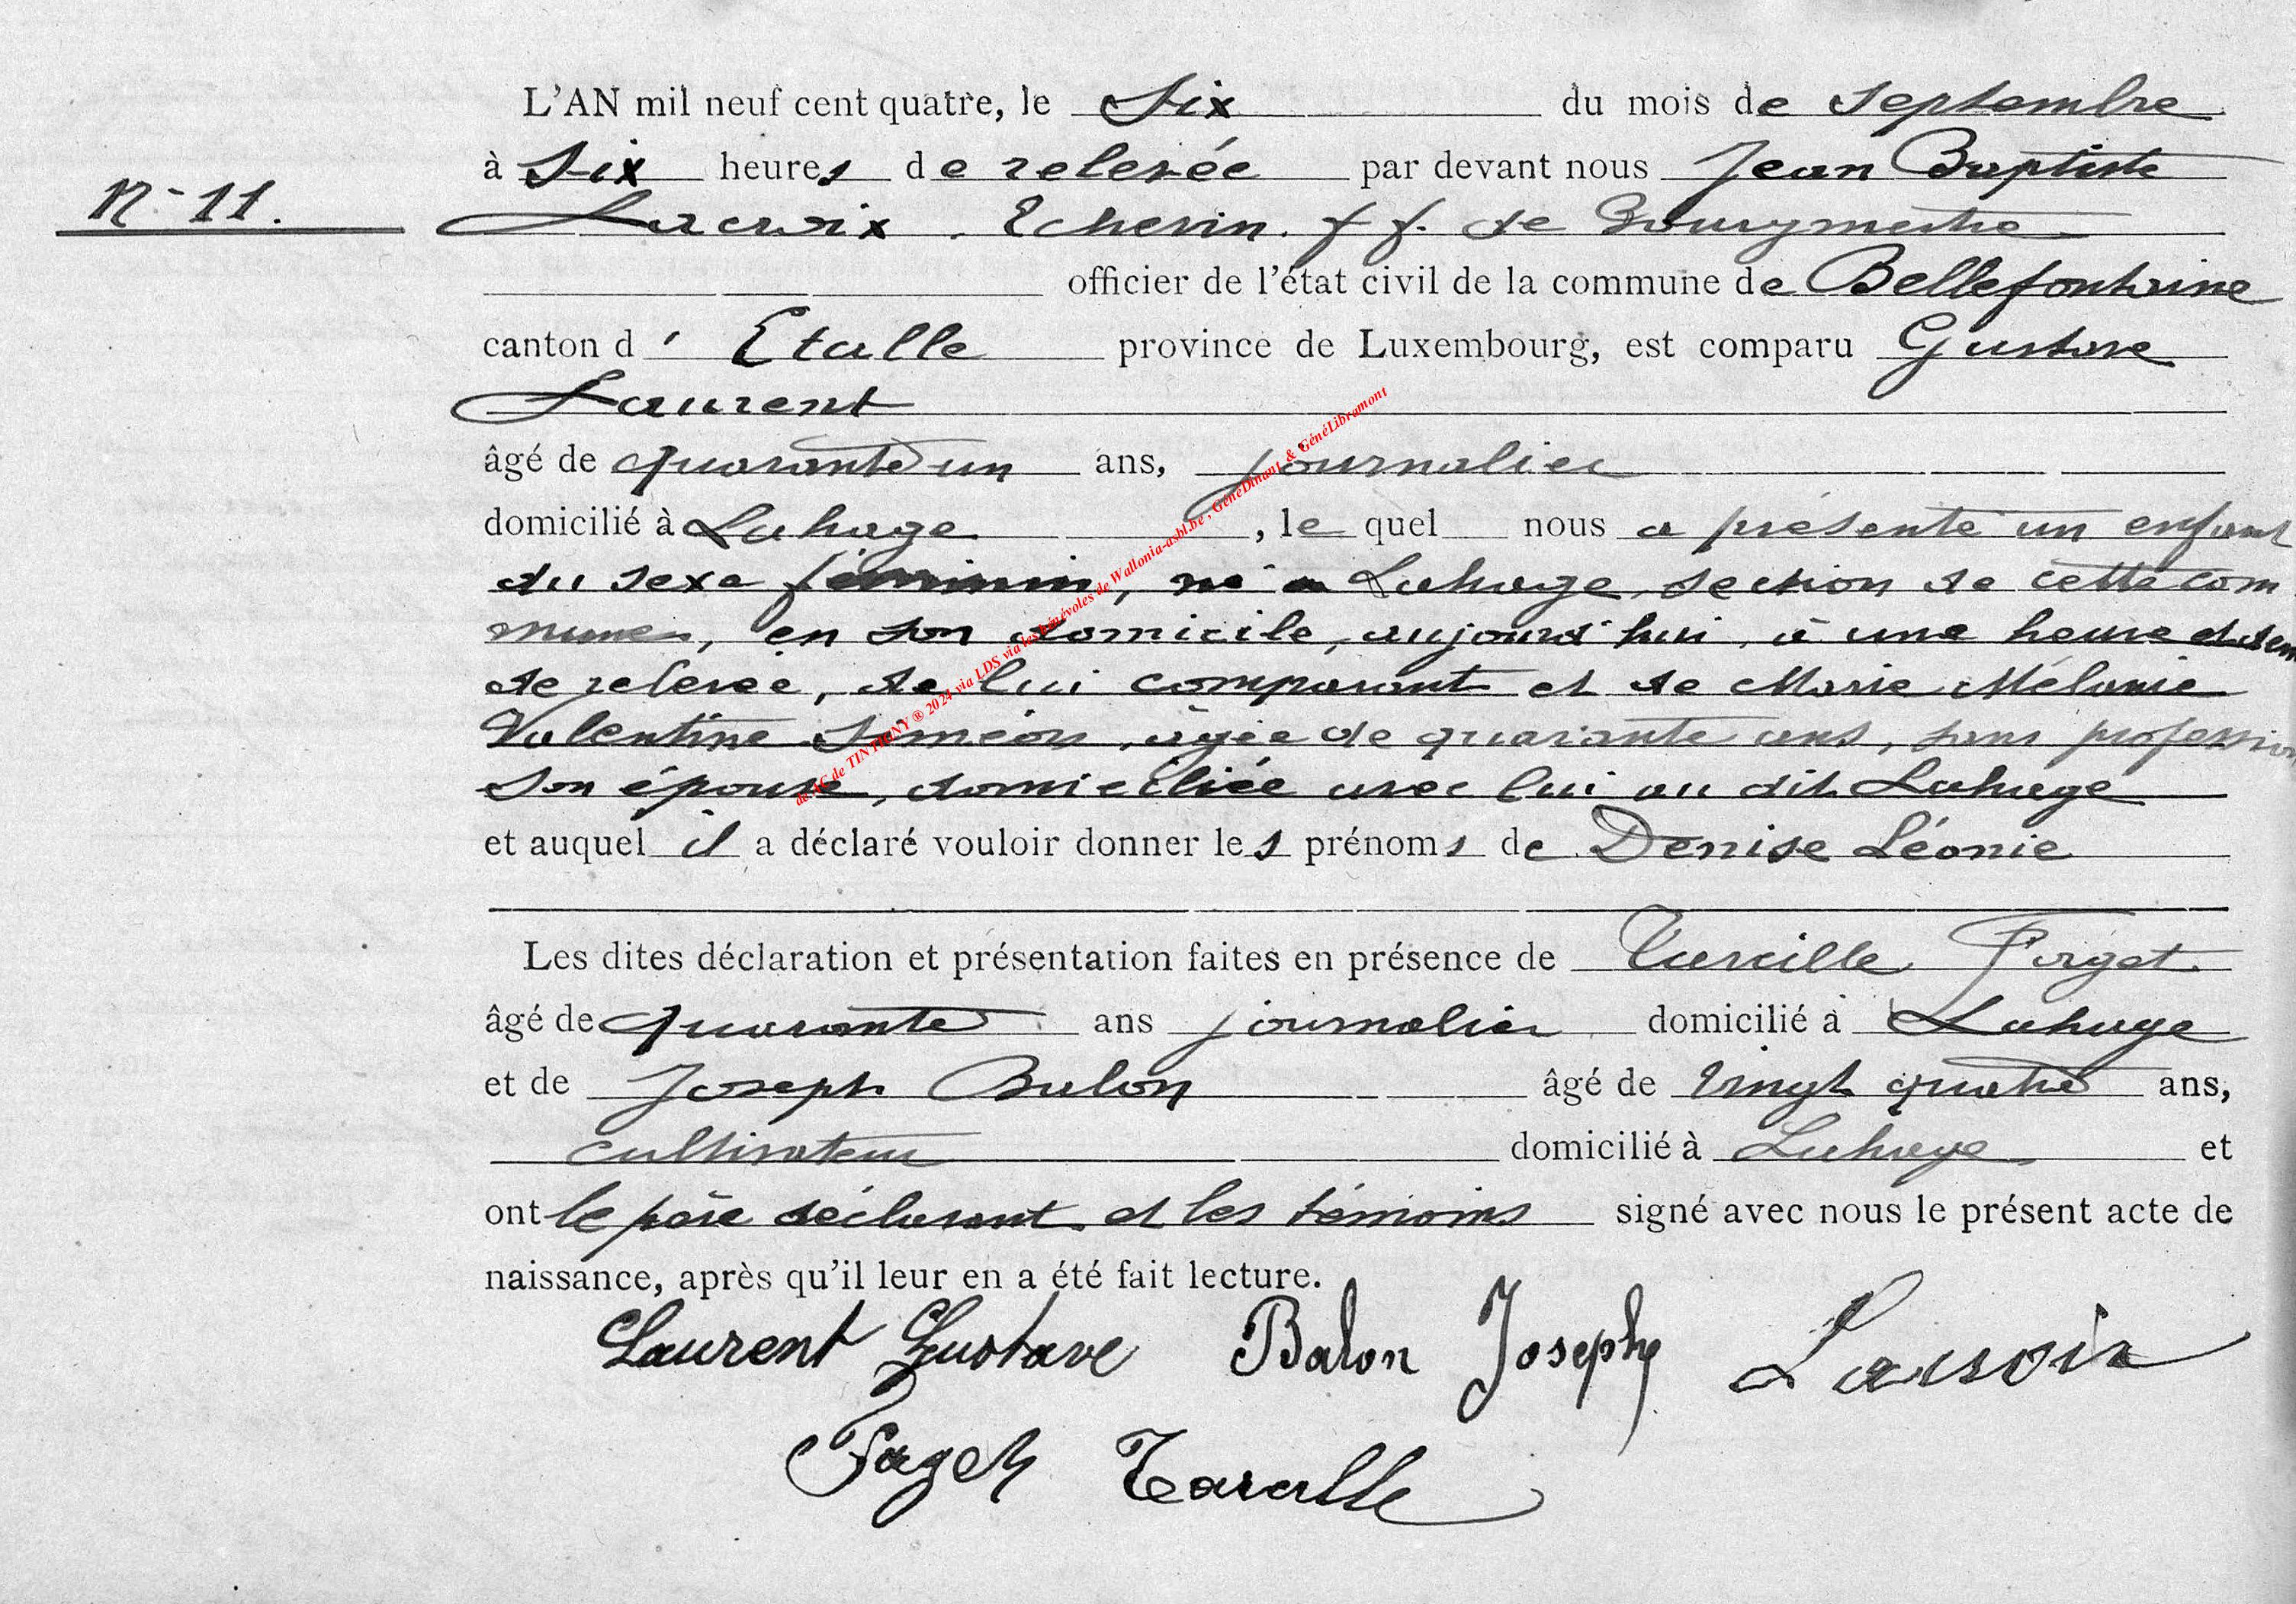 L'AN mil neuf cent quatre, le Six du mois de Septembre
à Six heures de relevée par devant nous Jean Baptiste
N° 11.
Lacroix, Echevin. f f. de Bourgmestre
officier de l'état civil de la commune de Bellefontaine
canton d' Etalle province de Luxembourg, est comparu Gustave
Laurent
âgé de quarante un ans, journalier
domicilié à Lahage, le quel nous a présenté un enfant
du sexe féminin, né à Lahage, section de cette com
mune, en son domicile, aujourd'hui, à une heure et dem
de relevée, de lui comparant et de Marie Mélanie
Valentine Siméon, âgée de quarante ans, sans profession
son épouse, domiciliée avec lui au dit Lahage
et auquel il a déclaré vouloir donner les prénoms de Denise Léonie
Les dites déclaration et présentation faites en présence de Forget
âgé de quarante ans journalier domicilié à Lahage
et de Joseph Balon âgé de vingt quatre ans,
cultivateur domicilié à Lahage et
ont le père déclarant et les témoins signé avec nous le présent acte de
naissance, après qu'il leur en a été fait lecture.
Laurent Gustave Balon Joseph Lacroix
de AC de TINTIGNY ® 2024 via LDS via les bénévoles de Wallonia-asbl.be, GénéDinant & GénéLibramont